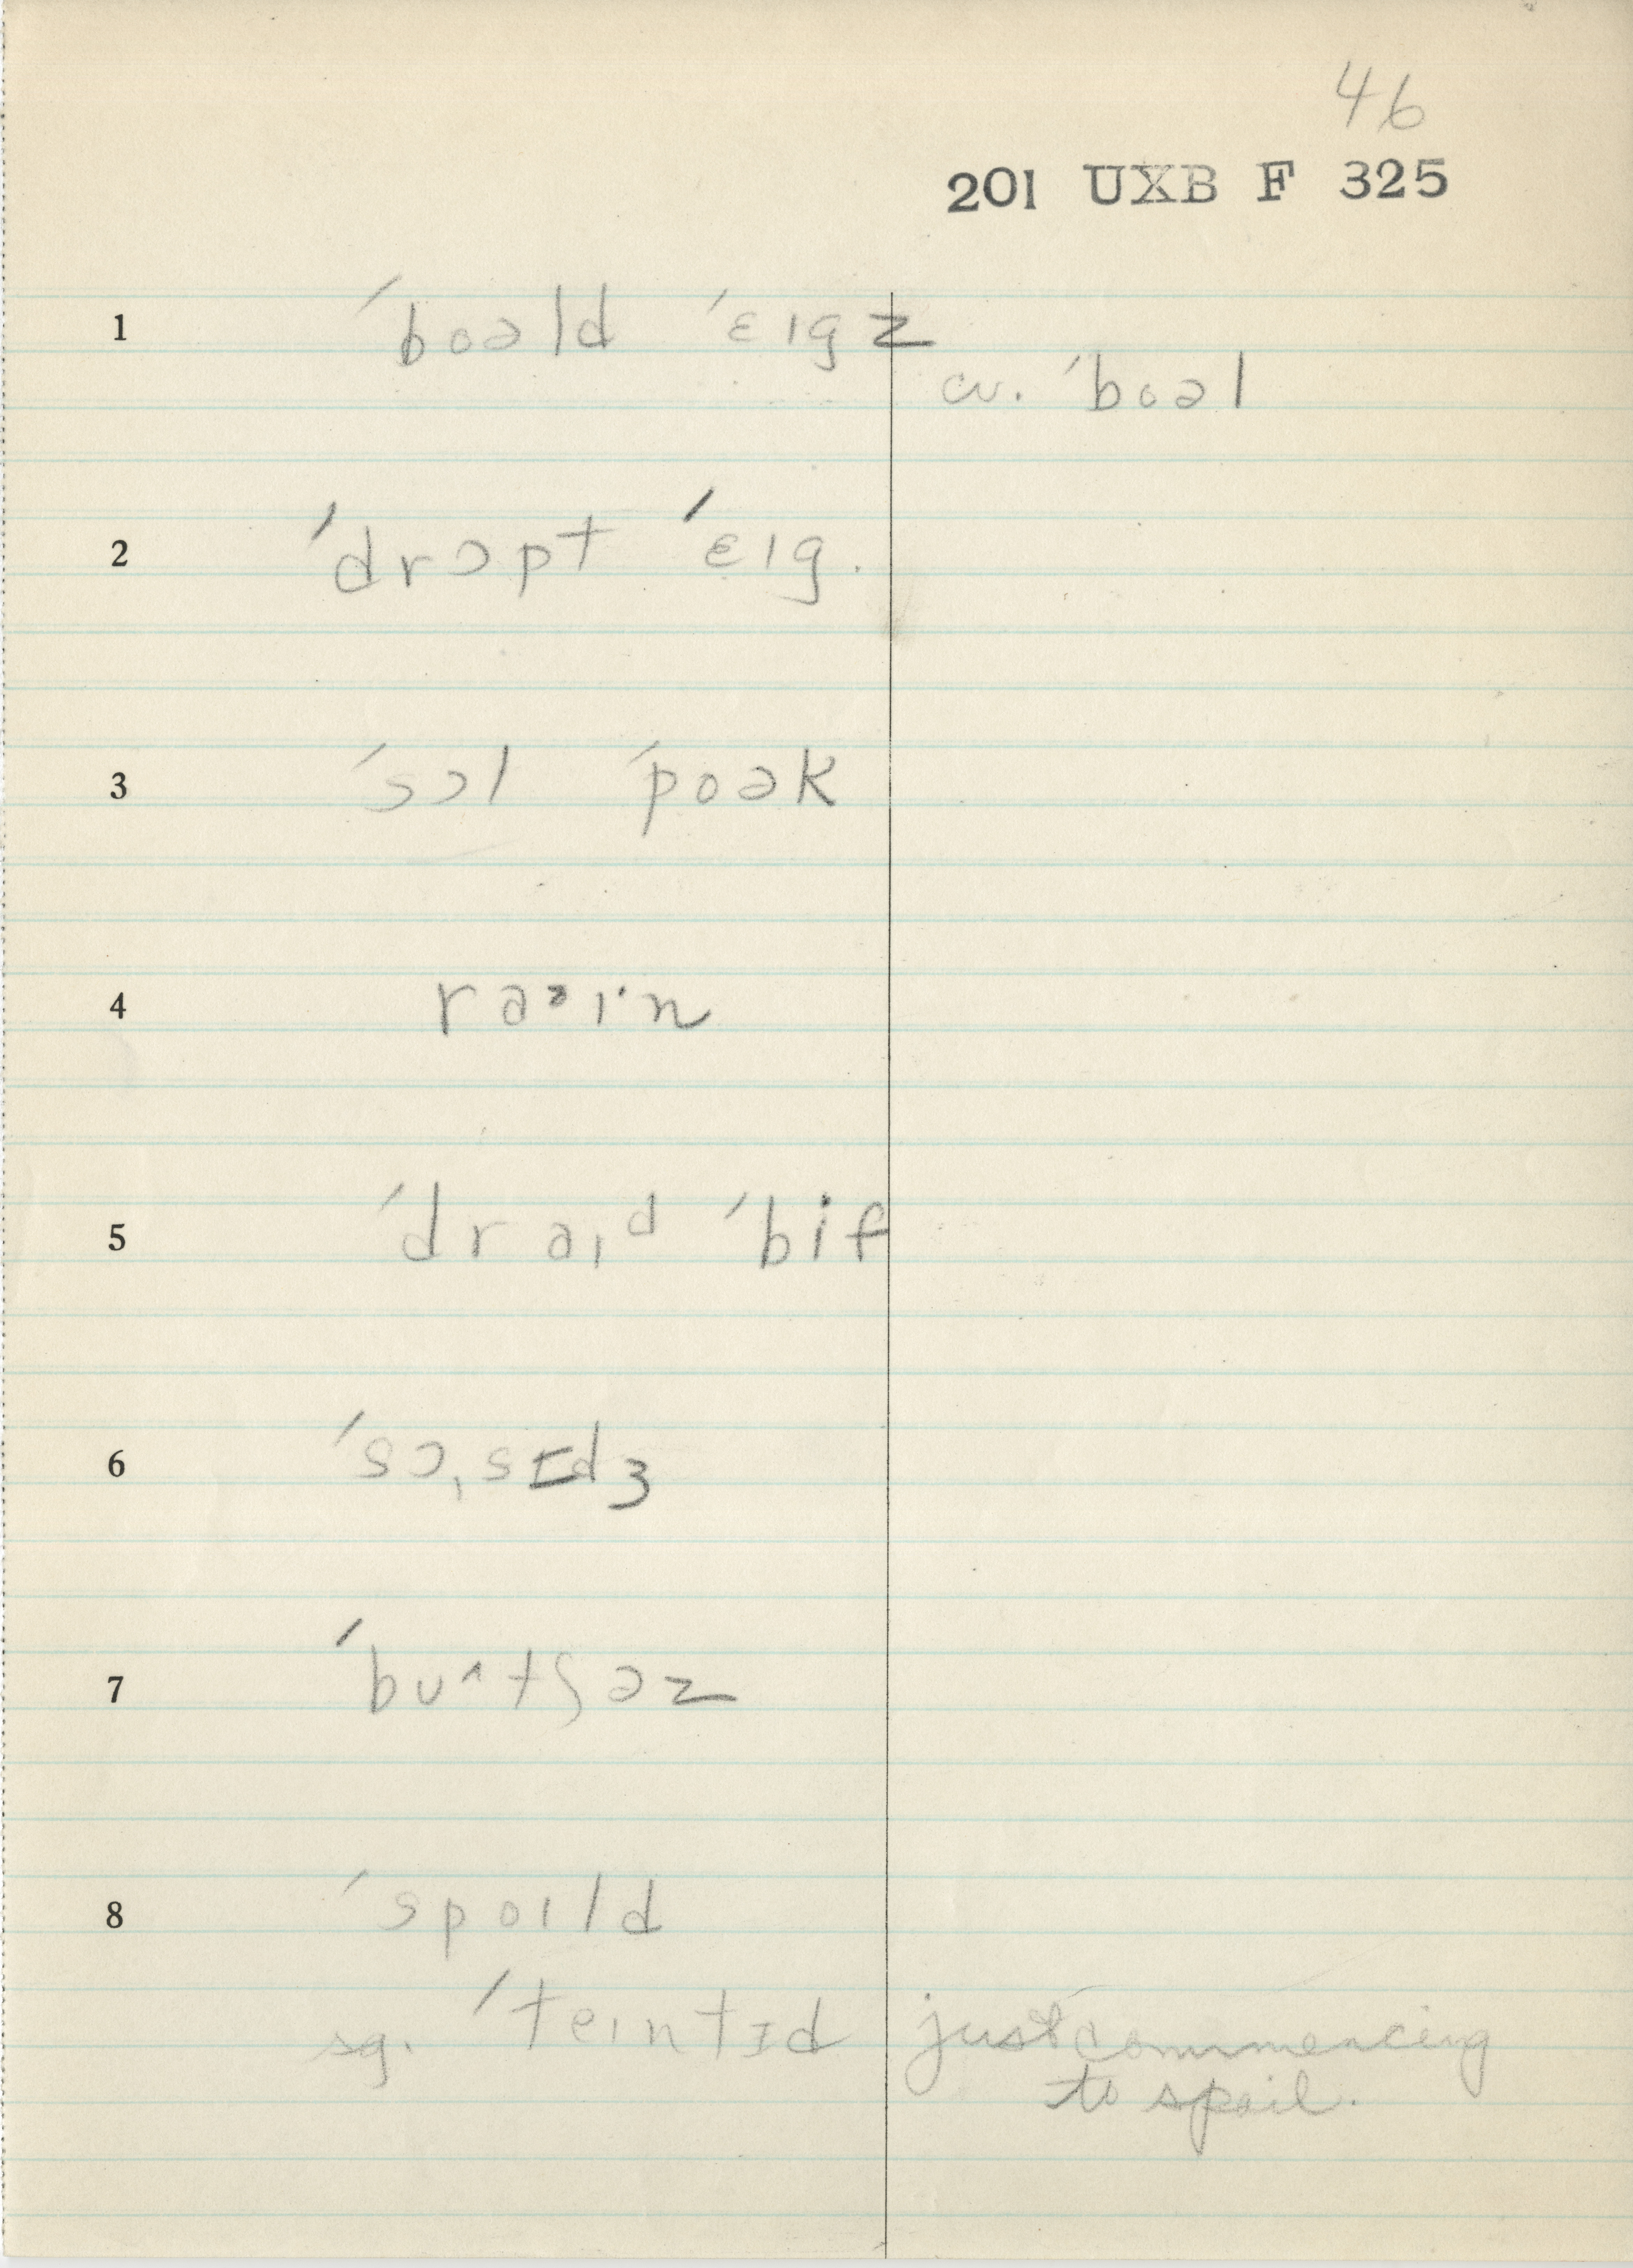 46
201 UXB F 325
1 ˈboəld ˈɛɪgz
cv. ˈboəl
2 ˈdrɔpt ˈɛɪg.
3 ˈsɔl ˈpoək
4
5 ˈdraɪd ˈbif
6 ˈsɔˌsɪdʒ
7 ˈbu^tʃəz
8 ˈspoɪld
sg. ˈteɪntɪd just commencing
to spoil.